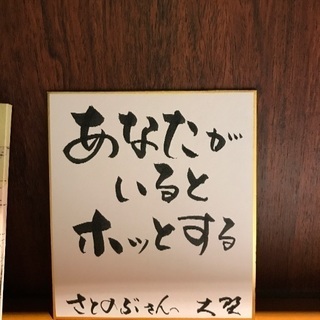 あなたが
いると
ホッとする
さとのぶさんへ